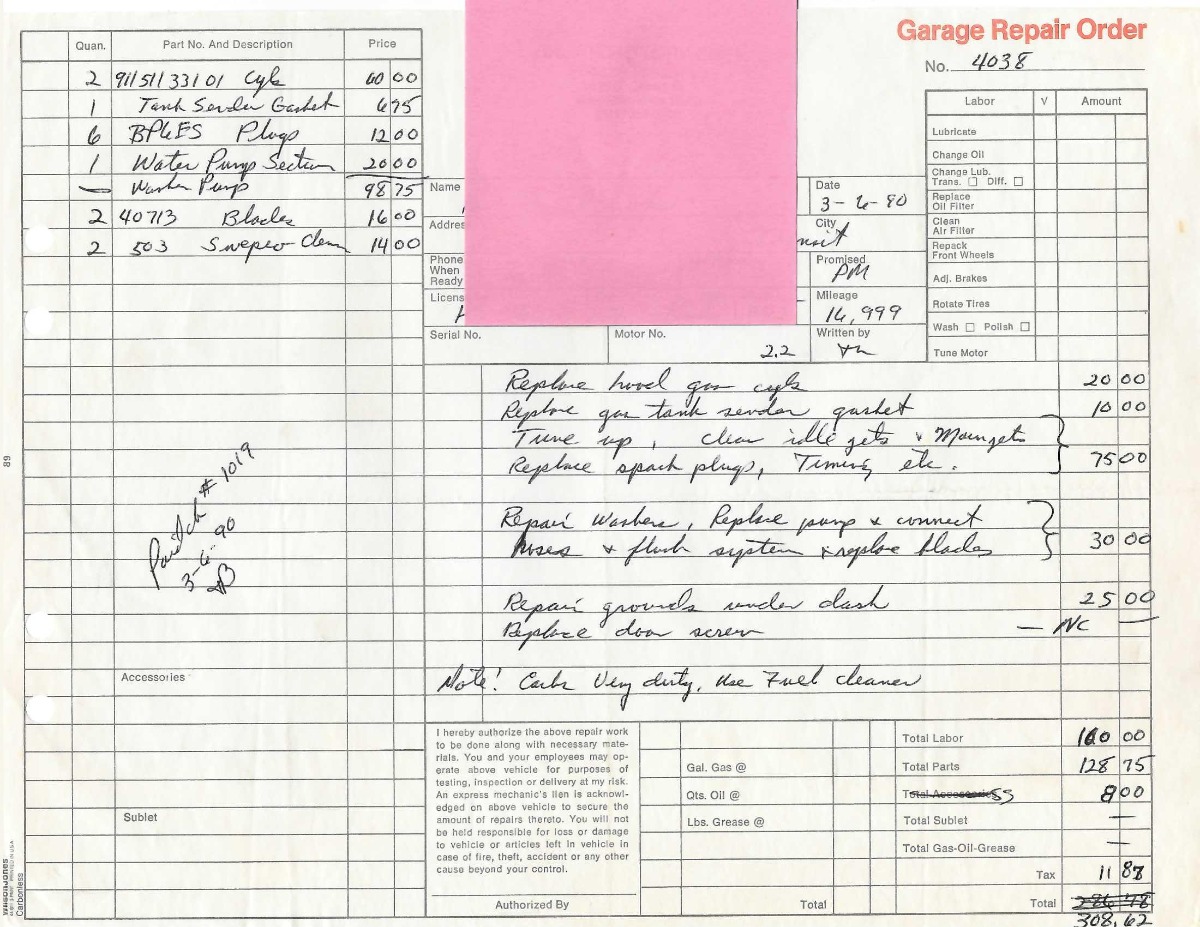 Garage Repair Order
No. 4038
Quan. Part No. And Description Price
2 911 511 331 01 Cyls 60 00
1 Tank Sender Gasket 6 75
6 BP6ES Plugs 12 00
1 Water Pump Section 20 00
— Washer Pump 98 75
2 40713 Blades 16 00
2 503 Swepco Clean 14 00
Labor V Amount
Lubricate
Change Oil
Change Lub.
Trans. ☐ Diff. ☐
Replace
Oil Filter
Clean
Air Filter
Repack
Front Wheels
Adj. Brakes
Rotate Tires
Wash ☐ Polish ☐
Tune Motor
Name
Date
3-6-90
Addres
City
Phone
When
Ready
Promised
PM
Licens
Mileage
16,999
Serial No.
Motor No.
2.2
Written by
Replace hood gas cyls 20 00
Replace gas tank sender gasket 10 00
Tune up, clean idle gets & Maingets
Replace spark plugs, Timing etc. 75 00
Repair Washers, Replace pump & connect
hoses & flush system & replace blades 30 00
Repair grounds under dash 25 00
Replace door screw — NC —
Note! Carbs Very dirty, Use Fuel cleaner
Paid ck # 1019
3-6-90
Accessories
Sublet
89
I hereby authorize the above repair work
to be done along with necessary mate-
rials. You and your employees may op-
erate above vehicle for purposes of
testing, inspection or delivery at my risk.
An express mechanic's lien is acknowl-
edged on above vehicle to secure the
amount of repairs thereto. You will not
be held responsible for loss or damage
to vehicle or articles left in vehicle in
case of fire, theft, accident or any other
cause beyond your control.
Authorized By
Gal. Gas @
Qts. Oil @
Lbs. Grease @
Total
Total Labor 160 00
Total Parts 128 75
Total Accessories SS 8 00
Total Sublet —
Total Gas-Oil-Grease —
Tax 11 87
Total
308.62
WilsonJones
Carbonless